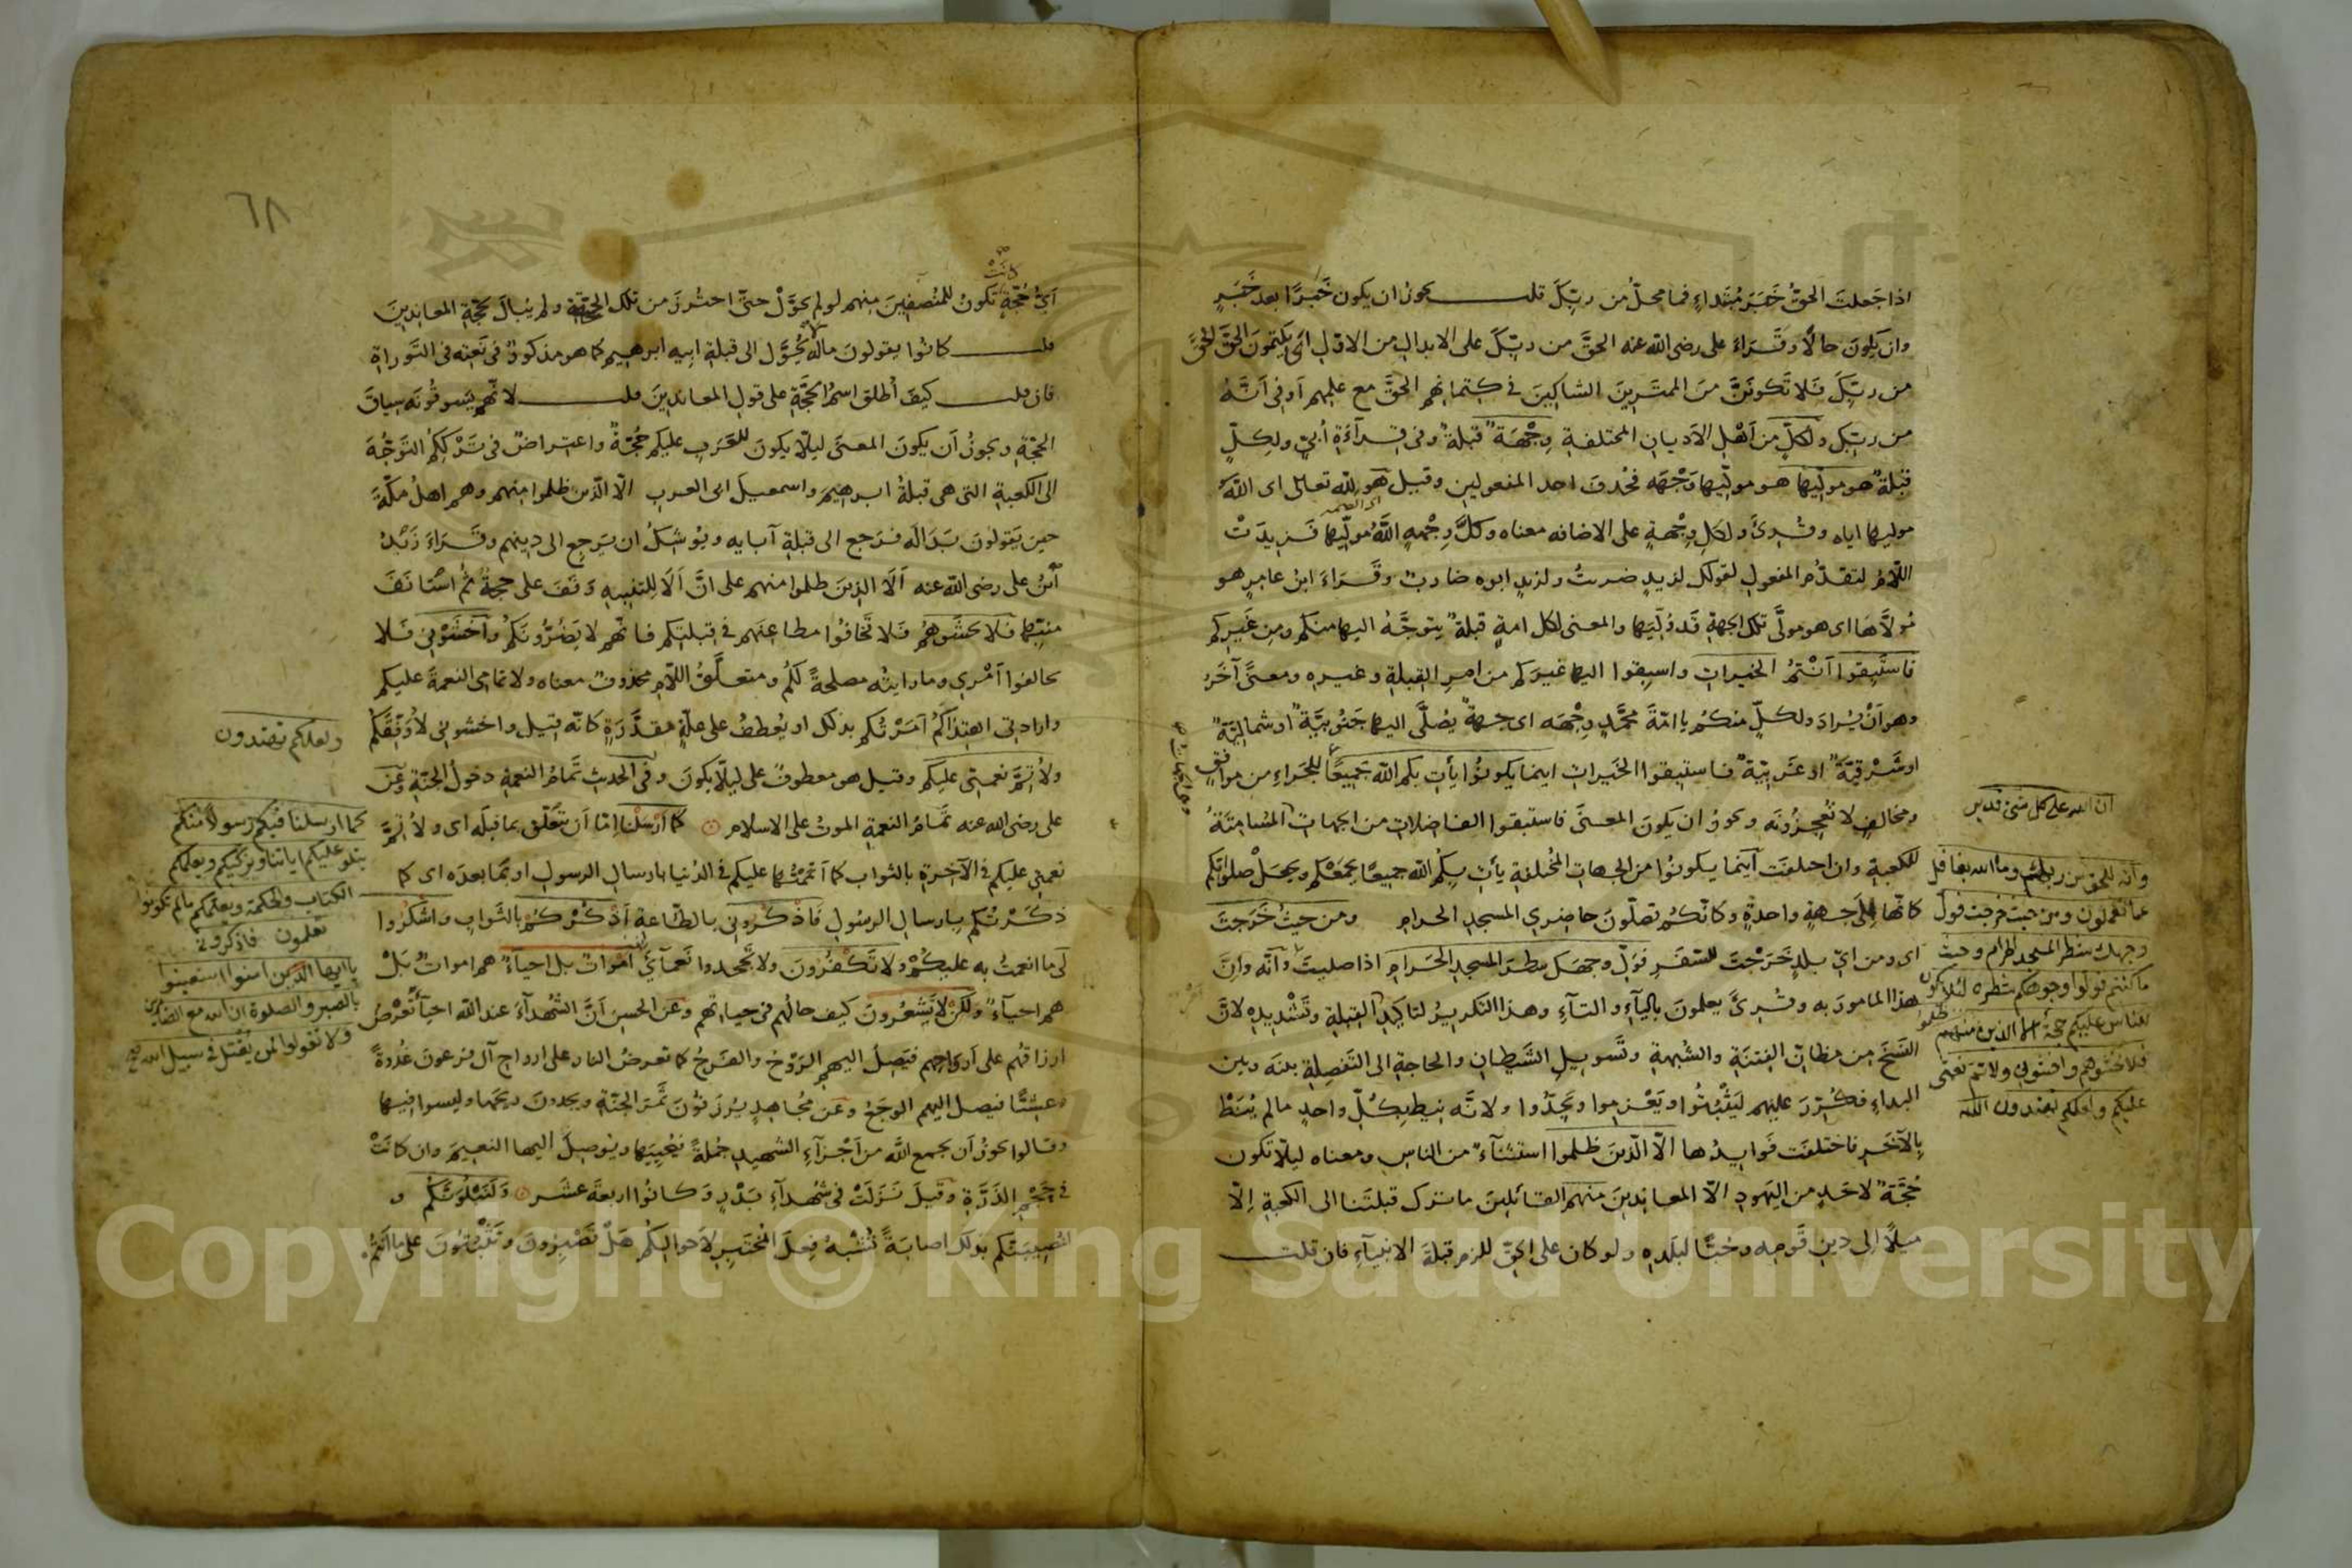 اذا جَعلتَ الحقّ خَبَرَ مُبتداءٍ فما محلّ من ربّكَ قلت يجوز ان يكون خَبَرًا بعد خَبَرٍ
وان يكونَ حالًا وقَرَاءَ على رضى الله عنه الحقَّ من ربّكَ على الابدال من الاوّل اى يكتمون الحقّ الحقّ
من ربّكَ فَلا تَكونَنَّ منَ الممتَرينَ الشاكينَ فى كتمانهم الحقَّ مع علمهم اَو فى اَنَّهُ
من ربّك ولكلٍّ من اَهْلِ الاَديان المختلفةِ وِجْهَةٌ قبلةٌ وفى قرآءَةِ اُبىّ ولكلٍّ
قبلةٌ هو مولّيها هو مولّيها وَجْهَه فحُذفَ احد المفعولين وقيل هو لِلّه تعالى اى اللهُ
موليها اياه وقُرِئَ ولكلِ وِجْهةٍ على الاضافه معناه وكلَّ وِجْههٍ اللَّهُ مُولّيها فزِيدَتْ
اللّامُ لتقدّم المفعول لقولك لزيدٍ ضربتُ ولزيدٍ ابوه ضاربٌ وقَرَاءَ ابنُ عامرٍ هو
مُولَّاهَا اى هو مولَّى تلك الجهةِ قَد وُلّيَها والمعنى لكل امةٍ قبلةٌ يتوجَّهُ اليها منكم ومِن غَيركم
فاستَبِقوا اَنْتُمُ الخيراتِ واسبِقوا اليها غيرَكم من امرِ القِبلةِ وغيره ومعنًى آخَرُ
وهو اَنْ يُرادَ ولكلٍّ منكم يا امّةَ محمَّدٍ وِجْهَه اى جهةٌ يُصَلَّى اليها جَنُوبيَّةٌ او شماليّةٌ
او شَرْقِيَّةٌ او غَربيّةٌ فاستبِقوا الخَيراتِ اينما يكونوُا يأتِ بكم اللهُ جَمِيعًا للجَزاءِ من موافِقٍ
ومخالفٍ لا تُعجِزُونَه ويجوزُ ان يكونَ المعنَى فاستبقوا الفاضلات من الجهات المُسَامِتَةُ
للكعبةِ وان اختلفَت اَينَما يكونُوا من الجهاتِ المُختلفةِ يأتِ بكُم الله جميعًا يجمَعْكم ويجعَلْ صلواتِكم
كانّها اِلَى جهةٍ واحدةٍ وكانّكم تصلّونَ حاضِرى المسجدِ الحرامِ ومن حيثُ خَرَجتَ
اى ومن اىّ بلدٍ خَرَجْتَ للسّفَرِ فوَلِّ وجهَكَ شطرَ المسجدِ الحَرامِ اذا صليتَ وانّه وانّ
هذا المامورَ به وقُرئَ يعلمونَ بالياءِ والتآءِ وهذا التكريرُ لتاكيدِ القِبلةِ وتَشْديدِهِ لانّ
النّسْخَ مِن مظانّ الفِتنَةِ والشُبهةِ وتَسويلِ الشَّيطانِ والحاجةِ الى التَفصِلةِ بينَه وبين
البداءِ فكُرّرَ عليهم ليَثْبُتُوا ويَعْزموا ويَجِدّوا ولانّه نِيطَ بكُلّ واحدٍ مالم يُنَطْ
بِالآخَرِ فاختلفَت فَوايِدُها الّا الّذينَ ظلموا استثنآءٌ من الناسِ ومعناه ليلّا تكون
حُجَّةٌ لاحَدٍ من اليَهودِ الّا المعاندِينَ منهم القائلينَ ما ترك قبلتَنا الى الكعبةِ اِلّا
ميلًا اِلى دينِ قَومِه وحُبًّا لبلَدهِ ولو كان على الحقّ للزم قبلةَ الانبيآءِ فان قلت
ان الله على كل شئ قدير
وانه للحق من ربك وما الله بغافل
عما تعملون ومن حيث خرجت فول
وجهك شطر المسجد الحرام وحيث
ما كنتم فولوا وجوهكم شطره لئلا يكون
للناس عليكم حجة الا الذين ظلموا منهم
فلا تخشوهم واخشونى ولاتم نعمتى
عليكم ولعلكم تهتدون
٦٨
اَىُّ حُجّةٍ كانَتْ تكونُ للمُنصِفِينَ مِنهم لو لم يحوَّلْ حتّى احتُرزَ من تلك الحجّةِ ولم يُبالَ بحجّةِ المعاندِينَ
قلت كانُوا يقولونَ ماله لا يُحَوَّل الى قبلةِ ابيه ابرهيم كما هو مذكورٌ فى نَعتِه فى التَّوراةِ
فان قلت كيفَ اُطلقَ اسمُ الحجَّةِ على قولِ المعاندِينَ قلت لانّهم يَسوقُونَه سياقَ
الحجّةِ ويجوزُ اَن يكونَ المعنَى ليلّا يكونَ للعَرَبِ عليكم حُجّةٌ واعتراضٌ فى تَرْكِكُمُ التَوَجُّهَ
الى الكعبةِ التى هى قبلةُ ابرهيمَ واسمعيلَ ابى العربِ الّا الّذين ظلموا منهم وهم اهلُ مكّةَ
حين يَقولونَ بَدَا لَه فرَجع الى قبلةِ آبايه ويوُشكُ ان يَرجع الى دينهم وقَرَاءَ زَيْدُ
بنُ على رضى الله عنه اَلَا الذينَ ظلموا منهم على انَّ اَلَا لِلتنبيهِ وَقَفَ على حجّةٌ ثُم استَانَفَ
منبّها فلا تخشَوهُم فَلا تَخافُوا مطاعِنَهم فى قبلتِكم فانّهم لا يَضُرُّونَكُم واخْشَوْنِى فَلا
تخالفوا اَمْرى وما رايتُه مصلحةً لكُم ومتعلَّقُ اللّامِ محذوفٌ معناه ولاتمامى النعمةَ عليكم
وارادتى اهتداكُم اَمَرْتُكم بذلك او يُعطفُ على علّةٍ مقدَّرَةٍ كانّه قيل واخشونى لاُوَفِّقَكُم
ولاُتِمَّ نعمتِى عليكم وقيل هو معطوفٌ على ليلّا يكونَ وفى الحديث تَمامُ النعمةِ دخولُ الجنّةِ وعن
على رضى الله عنه تَمامُ النعمةِ الموتُ على الاسلام كما اَرْسَلنا اِمّا اَن يتَعلّق بما قبلَه اى ولاُتِمَّ
نعمتى عليكم فى الآخرةِ بالثواب كما اَتممْتُها عليكم فى الدُنيا بارسالِ الرسولِ او بما بعدَه اى كما
ذكَرْتُكم بارسالِ الرسُولِ فَاذْكُرُونى بالطّاعةِ اَذْكُرْكُمْ بالثَّوابِ واشْكُرُوا
لى ما انعمتُ به عليكُمْ ولا تَكفُرُونَ ولا تَجحدوا نَعمَآئى اَمْواتٌ بل احيآءٌ هم امواتٌ بَلْ
هم احيآءٌ ولكنْ لا يَشعُرُونَ كيف حالُهم فى حياتِهم وعَن الحسنِ انَّ الشُهدآءَ عند الله احيآءٌ تُعرَضُ
ارزاقُهم على اَرواحِهم فيَصِلُ اليهم الرَوْحُ والفَرحُ كما تعرضُ النار على ارواحِ آل فرعونَ غُدوةً
وعَشيًّا فيصل اليهم الوجَعُ وعَن مُجاهدٍ يُرزَقُونَ ثَمَرَ الجنّةِ ويجدونَ ريحَها وليسوا فيها
وقالوا يجوزُ اَن يجمع اللهُ من اَجْزآءِ الشهيدِ جُملةً فيُحيِيَها ويُوصِلَ اليها النعيمَ وان كانَتْ
فى حَجْمِ الذَرّةِ وقيلَ نَزَلَتْ فى شُهدآءِ بَدْرٍ وكانُوا اربعةَ عشَر ولَنَبْلُوَنَّكُم و
لنُصِيبَنّكم بذلك اصابَةً تُشْبهُ فِعلَ المُختَبِرِ لاَحوالِكُم هَلْ تَصْبِرونَ وتَثْبُتُونَ على ما انتُم
ولعلكم تهتدون
كما ارسلنا فيكم رسولا منكم
يتلو عليكم اياتنا ويزكيكم ويعلمكم
الكتاب والحكمة ويعلمكم مالم تكونوا
تعلمون فاذكرونى
يا ايها الذين امنوا استعينوا
بالصبر والصلوة ان الله مع الصابرين
ولا تقولوا لمن يقتل فى سبيل الله
Copyright © King Saud University